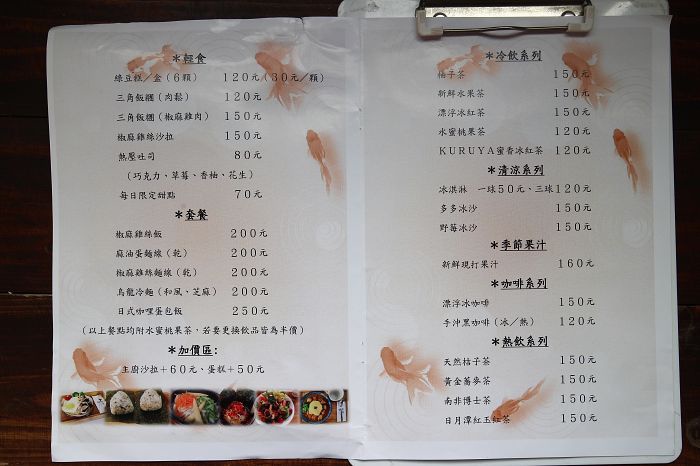 ＊輕食
綠豆糕／盒（6顆） 120元（30元／顆）
三角飯糰（肉鬆） 120元
三角飯糰（椒麻雞肉） 150元
椒麻雞絲沙拉 150元
熱壓吐司 80元
（巧克力、草莓、香柚、花生）
每日限定甜點 70元
＊套餐
椒麻雞絲飯 200元
麻油蛋麵線（乾） 200元
椒麻雞絲麵線（乾） 200元
烏龍冷麵（和風、芝麻） 200元
日式咖哩蛋包飯 250元
（以上餐點均附水蜜桃果茶，若要更換飲品皆為半價）
＊加價區：
主廚沙拉＋60元、蛋糕＋50元
＊冷飲系列
柚子茶 150元
新鮮水果茶 150元
漂浮冰紅茶 150元
水蜜桃果茶 120元
KURUYA蜜香冰紅茶 120元
＊清涼系列
冰淇淋 一球50元、三球120元
多多冰沙 150元
野莓冰沙 150元
＊季節果汁
新鮮現打果汁 160元
＊咖啡系列
漂浮冰咖啡 150元
手沖黑咖啡（冰／熱） 120元
＊熱飲系列
天然桔子茶 150元
黃金蕎麥茶 150元
南非博士茶 150元
日月潭紅玉紅茶 150元